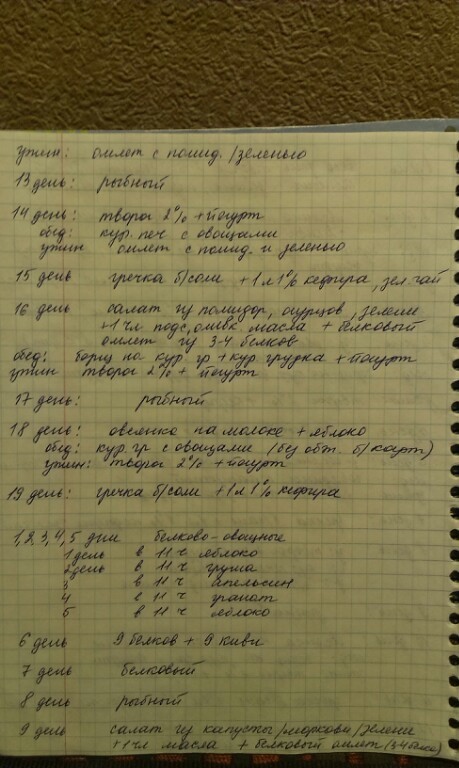 ужин: омлет с помид./зеленью
13 день: рыбный
14 день: творог 2% + йогурт
обед: кур. печ с овощами
ужин омлет с помид. и зеленью
15 день гречка б/соли + 1 л 1% кефира, зел. чай
16 день салат из помидор, огурцов, зелени
+ 1 чл подс, оливк. масла + белковый
омлет из 3-4 белков
обед: борщ на кур. гр + кур грудка + йогурт
ужин творог 2% + йогурт
17 день: рыбный
18 день: овсянка на молоке + яблоко
обед: кур. гр с овощами (без б/карт)
ужин: творог 2% + йогурт
19 день: гречка б/соли + 1 л 1% кефира
1, 2, 3, 4, 5 дни белково-овощные
1 день в 11 ч яблоко
2 день в 11 ч груша
3 в 11 ч апельсин
4 в 11 ч гранат
5 в 11 ч яблоко
6 день 9 белков + 9 киви
7 день белковый
8 день рыбный
9 день салат из капусты/моркови/зелени
+ 1 чл масла + белковый омлет (3-4 белка)